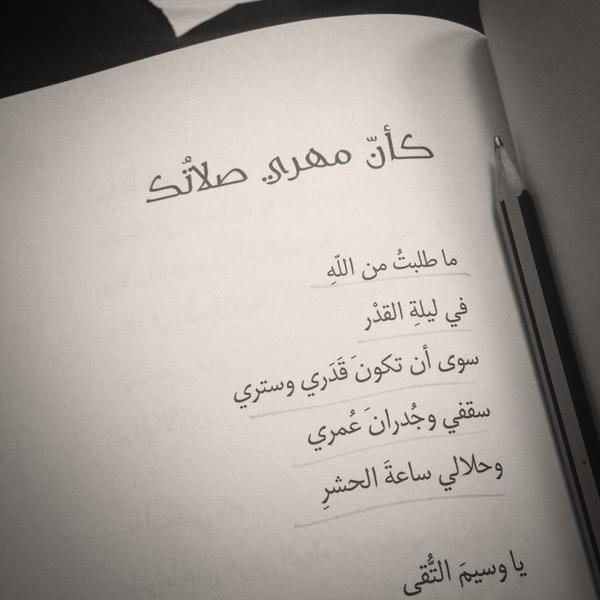 كأنّ مهري صلاتُك
ما طلبتُ من اللّهِ
في ليلةِ القدْر
سوى أن تكونَ قَدَري وستري
سقفي وجُدرانَ عُمري
وحلالي ساعةَ الحشرِ
يا وسيمَ التُّقى